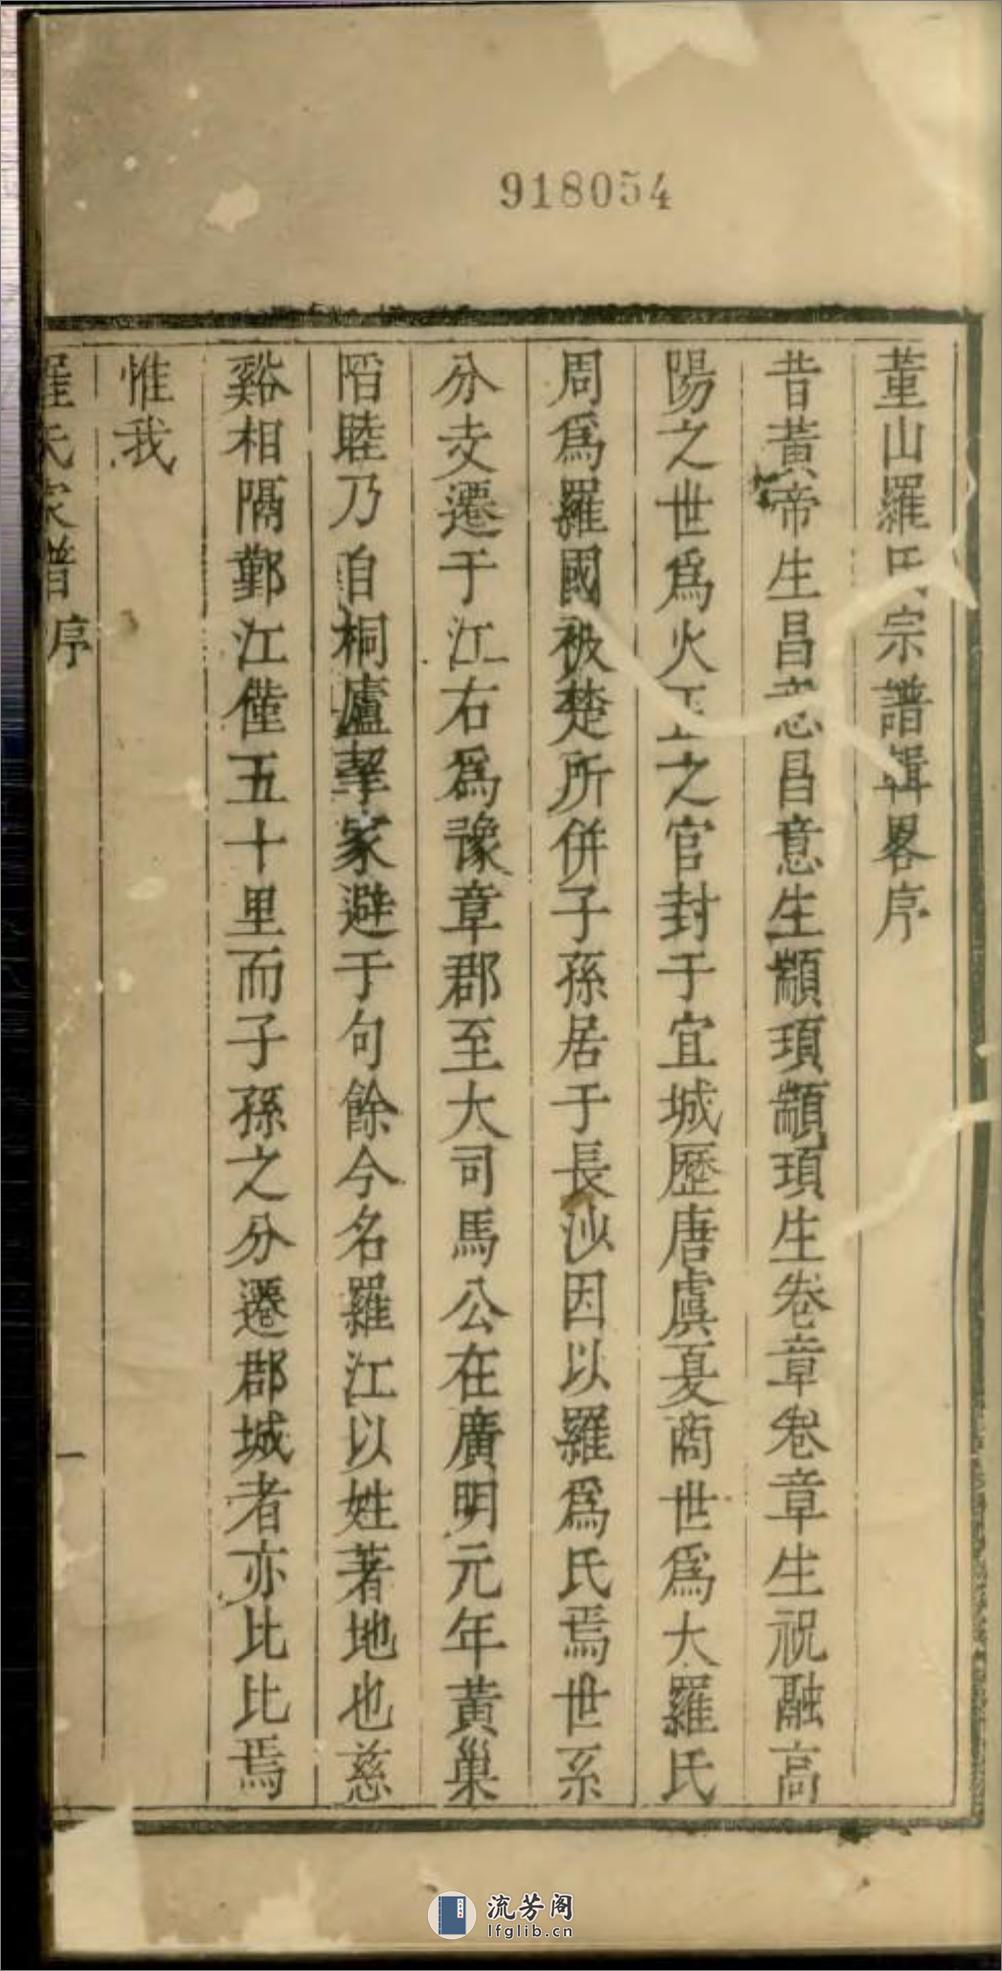 918054
董山羅氏宗譜輯畧序
昔黃帝生昌意昌意生顓頊顓頊生卷章卷章生祝融高
陽之世爲火正之官封于宜城歷唐虞夏商世爲大羅氏
周爲羅國被楚所併子孫居于長沙因以羅爲氏焉世系
分支遷于江右爲豫章郡至大司馬公在廣明元年黃巢
陷睦乃自桐廬挈家避于句餘今名羅江以姓著地也慈
谿相隔鄞江僅五十里而子孫之分遷郡城者亦比比焉
惟我
羅氏家譜序
一
流芳阁
lfglib.cn